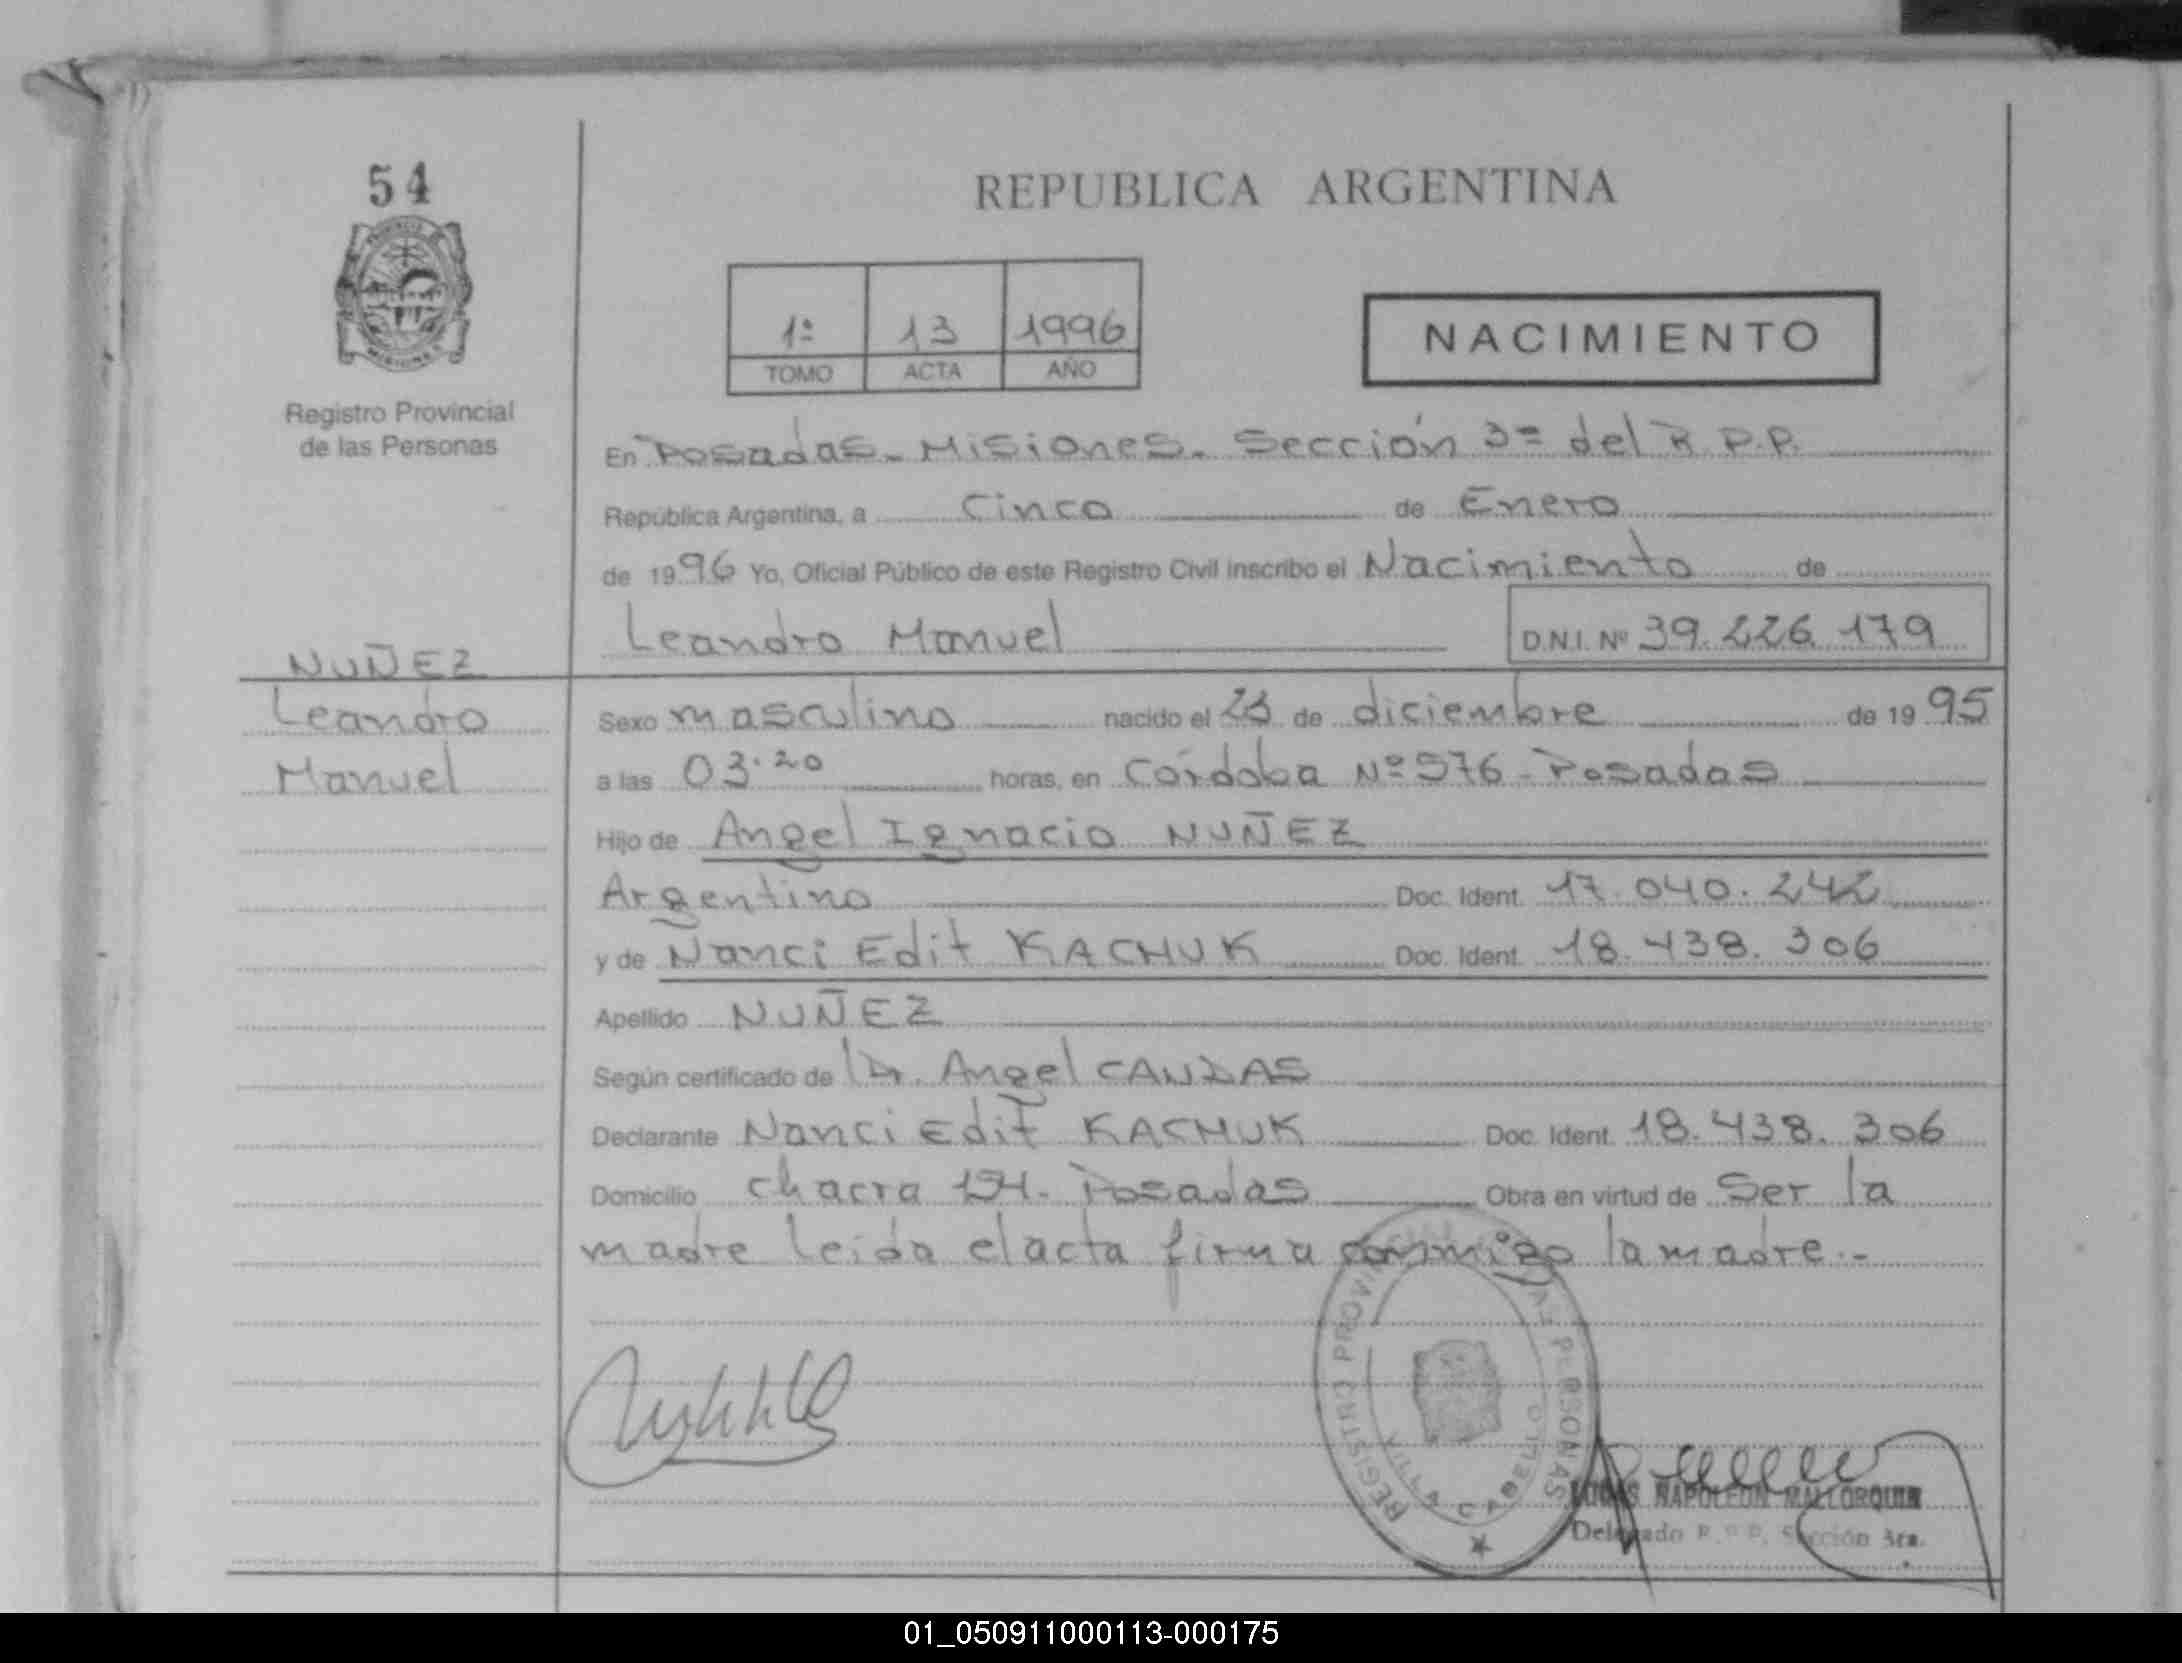 54
REPUBLICA ARGENTINA
1º 13 1996
TOMO ACTA AÑO
NACIMIENTO
Registro Provincial
de las Personas
En Posadas - Misiones. Sección 3ª del R.P.P.
República Argentina, a Cinco de Enero
de 1996 Yo, Oficial Público de este Registro Civil inscribo el Nacimiento de
Leandro Manuel D.N.I. Nº 39.226.179
NUÑEZ
Leandro
Manuel
Sexo masculino nacido el 23 de diciembre de 1995
a las 03.20 horas, en Córdoba Nº 576 - Posadas
Hijo de Angel Ignacio NUÑEZ
Argentino Doc. Ident. 17.040.242
y de Nanci Edit KACHUK Doc. Ident. 18.438.306
Apellido NUÑEZ
Según certificado de Dr. Angel
Declarante Nanci Edit KACHUK Doc. Ident. 18.438.306
Domicilio chacra 154. Posadas Obra en virtud de Ser la
madre leida el acta firma conmigo la madre.-
REGISTRO PROVINCIAL DE LAS PERSONAS
VILLA CABELLO
LUCAS NAPOLEON MALLORQUIN
Delegado R.P.P. Sección 3ra.
01_050911000113-000175